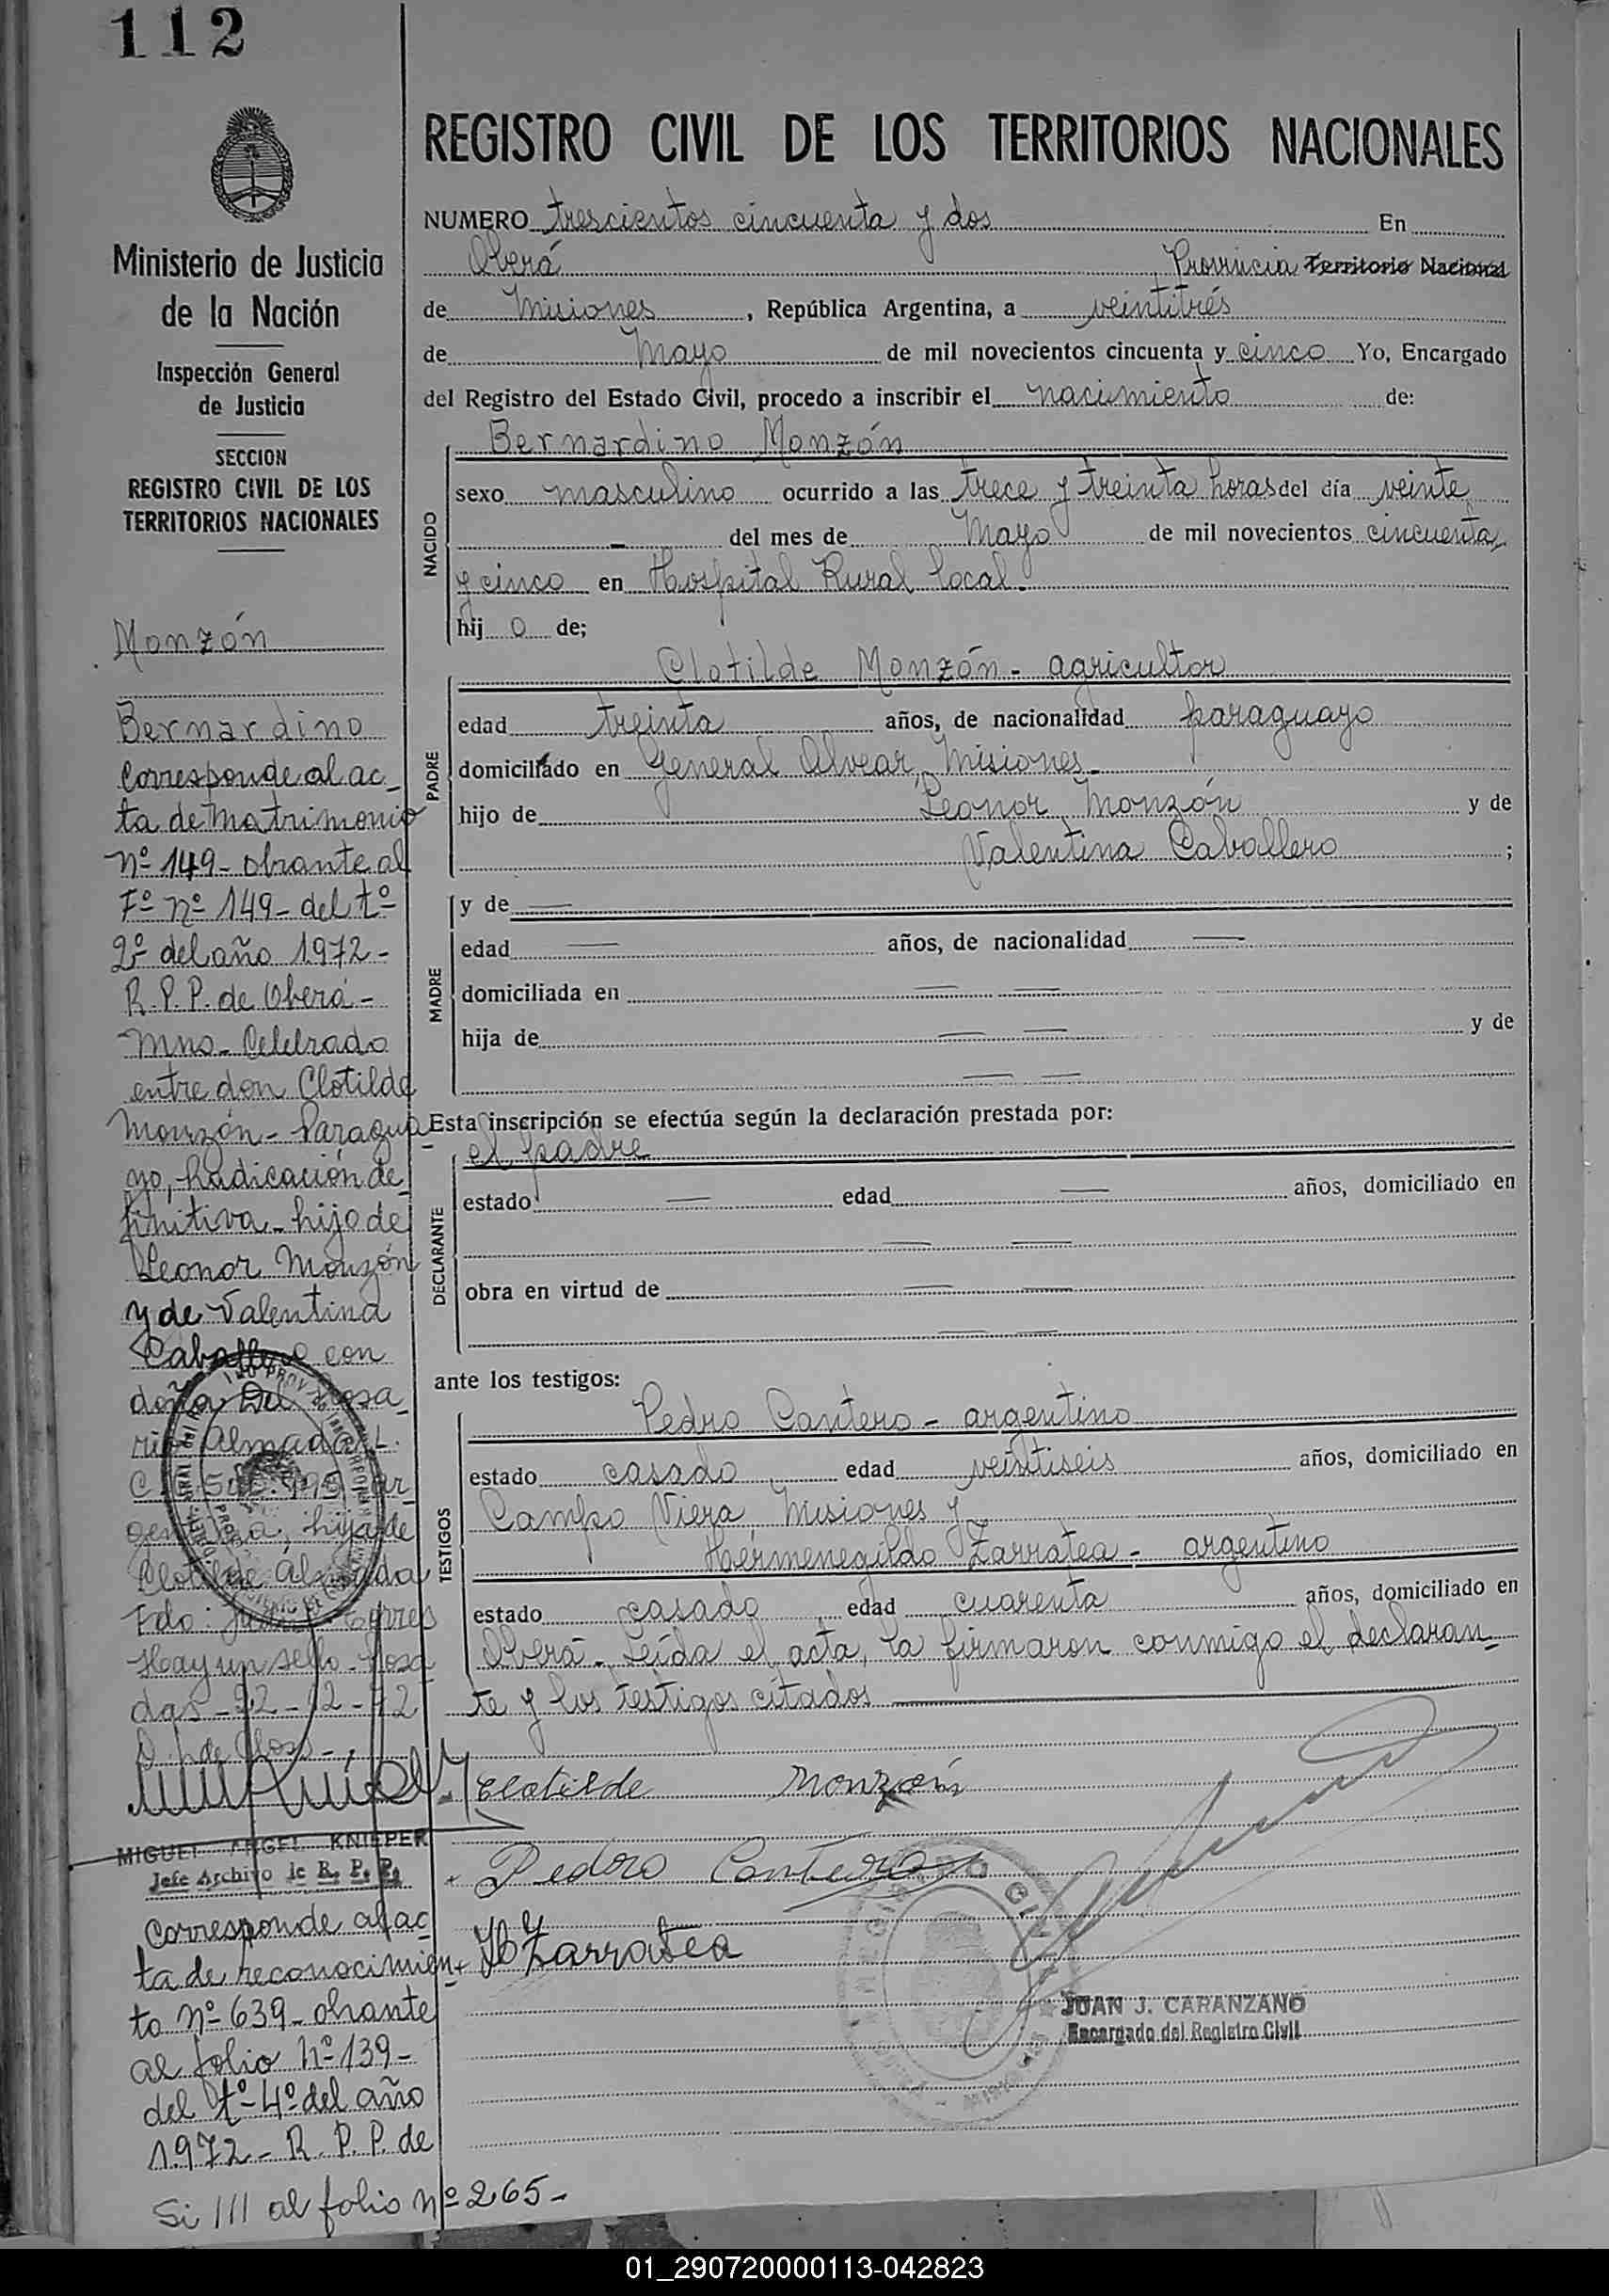 112
Ministerio de Justicia
de la Nación
Inspección General
de Justicia
SECCION
REGISTRO CIVIL DE LOS
TERRITORIOS NACIONALES
Monzón
Bernardino
Corresponde al ac-
ta de matrimonio
Nº 149- obrante al
Fº nº 149- del tº
2º del año 1972-
R.P.P. de Oberá-
Mns- Celebrado
entre don Clotilde
Monzón- Paragua
yo, Radicación de-
finitiva- hijo de
Leonor Monzón
y de Valentina
Caballero con
doña Del Rosa-
rio Almada L.
C. ar-
gentina, hija de
Clotilde Almada
Fdo: Torres
Hay un sello- Posa
das- 22-12-72
MIGUEL ANGEL KNIEPER
Jefe Archivo de R. P. P.
Corresponde al ac
ta de reconocimien-
to Nº 639- obrante
al folio Nº 139-
del tº- 4º del año
1972- R. P. P. de
Si /// al folio Nº 265-
REGISTRO CIVIL DE LOS TERRITORIOS NACIONALES
NUMERO trescientos cincuenta y dos En
Oberá Provincia Territorio Nacional
de Misiones, República Argentina, a veintitrés
de Mayo de mil novecientos cincuenta y cinco Yo, Encargado
del Registro del Estado Civil, procedo a inscribir el nacimiento de:
NACIDO
Bernardino Monzón
sexo masculino ocurrido a las trece y treinta horas del día veinte
- del mes de Mayo de mil novecientos cincuenta
y cinco en Hospital Rural local.
hij o de;
PADRE
Clotilde Monzón- agricultor
edad treinta años, de nacionalidad paraguayo
domiciliado en General Alvear, Misiones-
hijo de Leonor Monzón y de
Valentina Caballero ;
MADRE
y de —
edad — años, de nacionalidad —
domiciliada en — —
hija de — — y de
— —
Esta inscripción se efectúa según la declaración prestada por:
DECLARANTE
el padre
estado — edad — años, domiciliado en
— —
obra en virtud de — —
— —
ante los testigos:
TESTIGOS
Pedro Cantero- argentino
estado casado, edad veintiseis años, domiciliado en
Campo Viera, Misiones y
Hermenegildo Zarratea- argentino
estado casado, edad cuarenta años, domiciliado en
Oberá- Leída el acta, la firmaron conmigo el declaran-
te y los testigos citados
Clotilde Monzón
Pedro Cantero
H Zarratea
JUAN J. CARANZANO
Encargado del Registro Civil
01_290720000113-042823